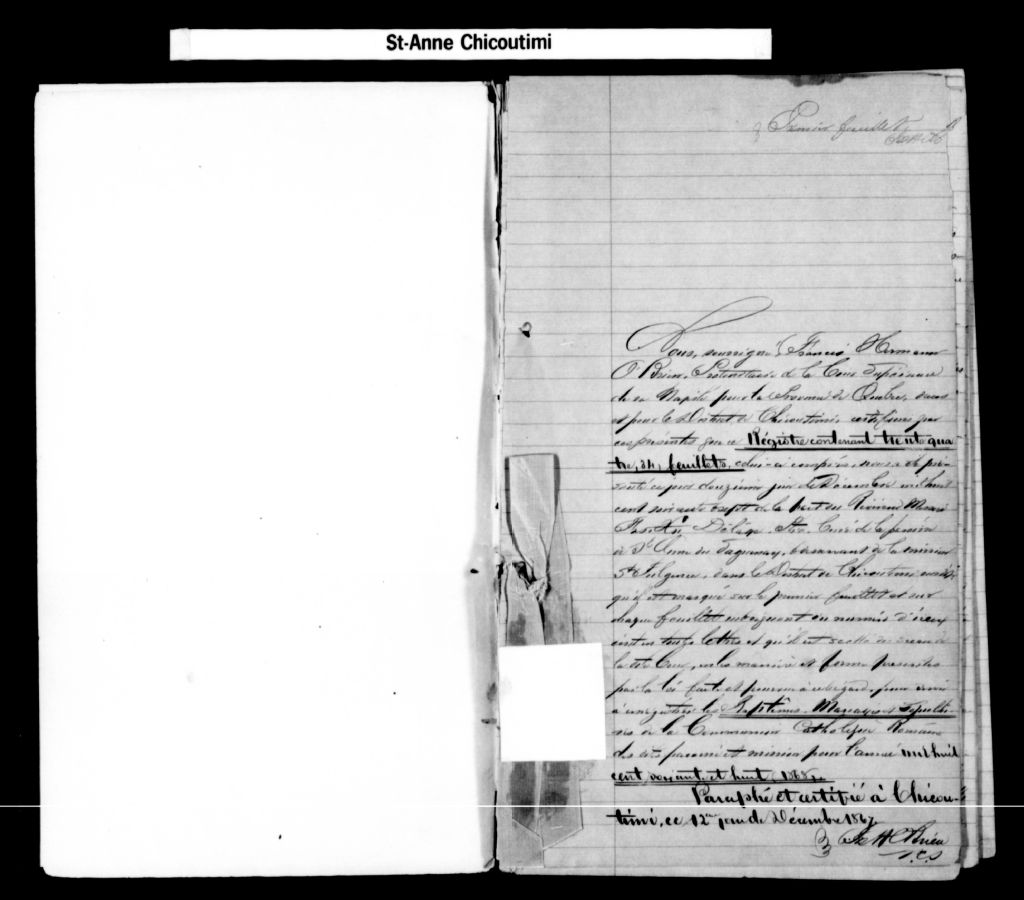 St-Anne Chicoutimi
Premier feuillet
Nous, soussigné, Francis Hermann
O'Brien, Protonotaire de la Cour Supérieure
de sa Majesté pour la Province de Québec, dans
et pour le District de Chicoutimi, certifions par
ces présentes que ce Régistre contenant trente qua-
tre, 34, feuillets, celui-ci compris, nous a été pré-
senté ce jour douzième jour de Décembre mil huit
cent soixante et sept de la part du Révérend Messire
Délâge Ptre. Curé de la paroisse
de Ste Anne du Saguenay, desservant de la mission
St Fulgence, dans le District de Chicoutimi
qu'il est marqué sur le premier feuillet et sur
chaque feuillet subséquent du numéro d'iceux
écrit en toutes lettres et qu'il est scellé du sceau de
la dite Cour, en la manière et forme prescrites
par la loi faite et pourvue à cet égard, pour servir
à enregistrer les Baptêmes, Mariages et Sépultu-
res de la Communion Catholique Romaine
des dits paroisse et mission pour l'année mil huit
cent soixante et huit, 1868.
Paraphé et certifié à Chicou-
timi, ce 12me jour de Décembre 1867.
F. H. O'Brien
P.C.S